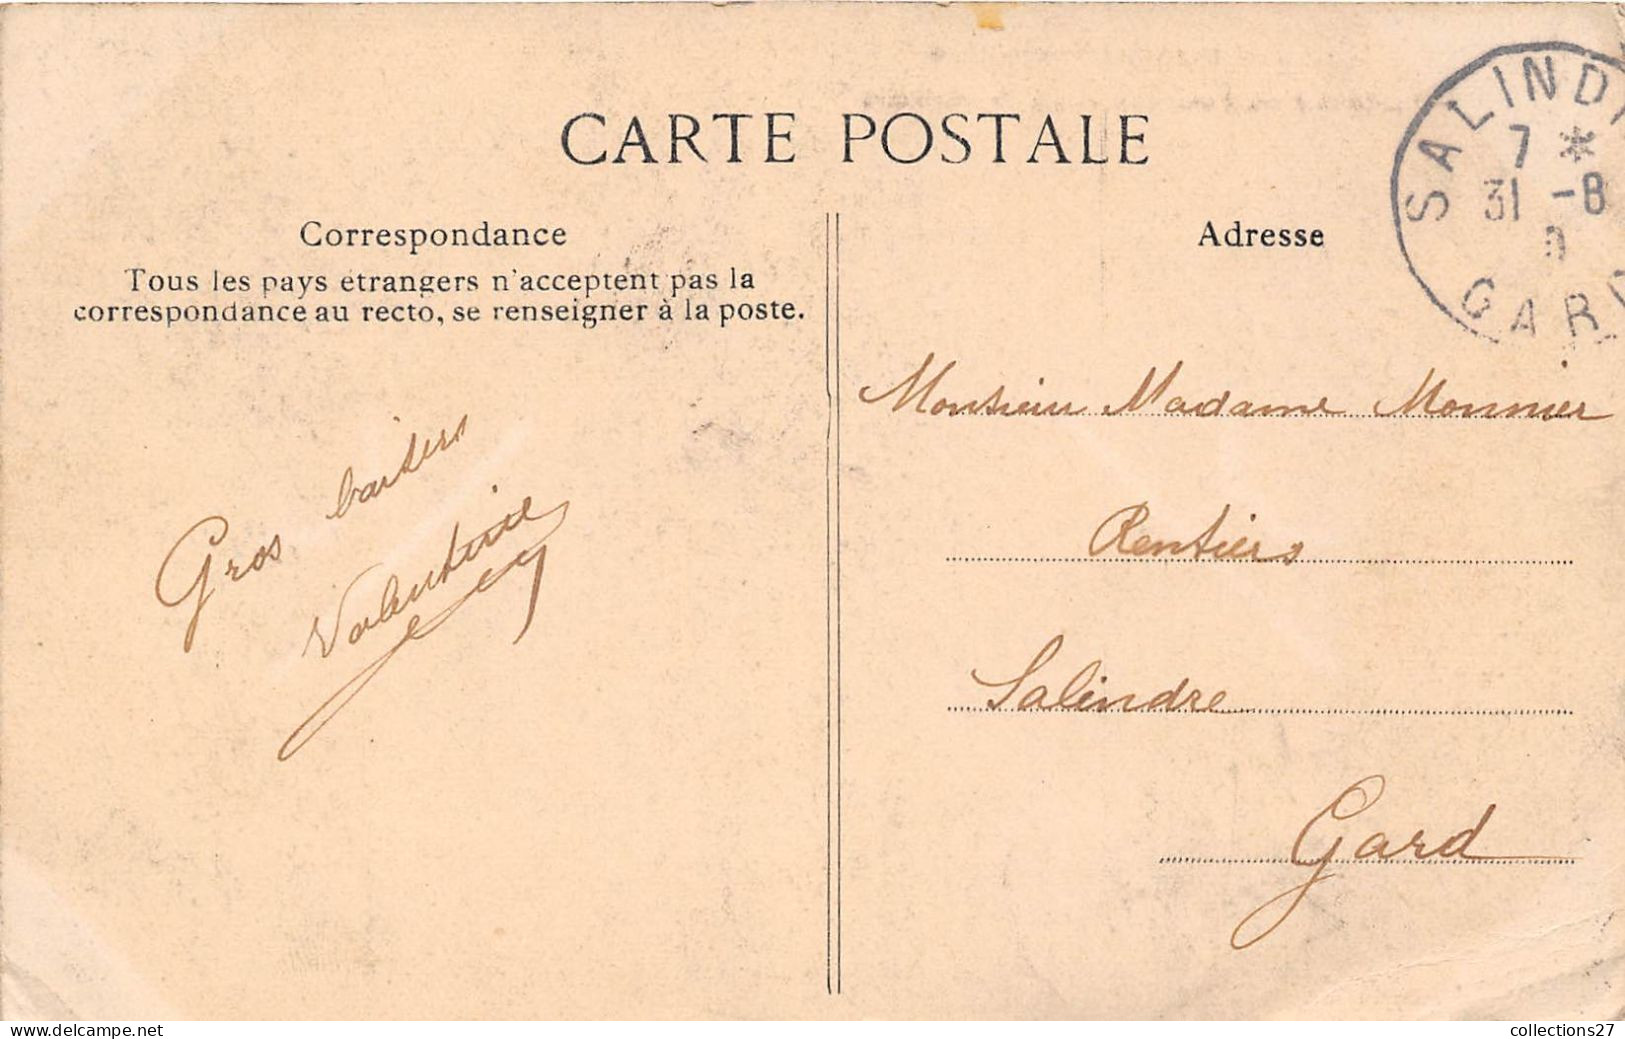 CARTE POSTALE
Correspondance
Tous les pays étrangers n'acceptent pas la
correspondance au recto, se renseigner à la poste.
Gros baisers
Valentine
Adresse
SALINDR
7 *
31 -8
GARD
Monsieur Madame Monnier
Rentiers
Salindre
Gard
www.delcampe.net
collections27